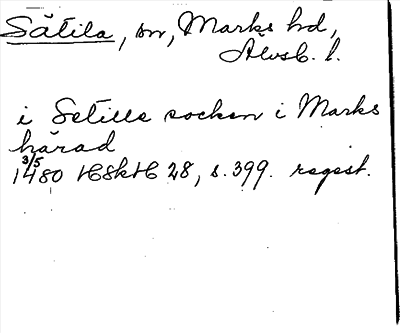 Sätila, sn, Marks hd,
Älvsb. l.
i Setille socken i Marks
härad
3/5
1480 HSkH 28, s. 399. regest.